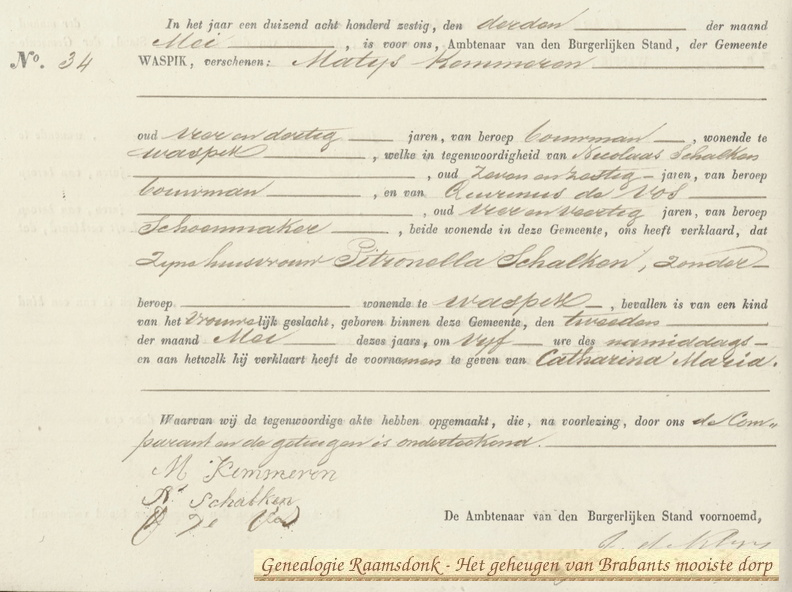 In het jaar een duizend acht honderd zestig, den derden der maand
Mei , is voor ons, Ambtenaar van den Burgerlijken Stand, der Gemeente
No. 34 WASPIK, verschenen: Matijs Kemmeren
oud vier en dertig jaren, van beroep bouwman , wonende te
Waspik , welke in tegenwoordigheid van Nicolaas Schalken
, oud zeven en zestig jaren, van beroep
bouwman , en van Quirinus de Vos
, oud vier en veertig jaren, van beroep
Schoenmaker , beide wonende in deze Gemeente, ons heeft verklaard, dat
Zijne huisvrouw Petronella Schalken, zonder
beroep wonende te Waspik , bevallen is van een kind
van het vrouwelijk geslacht, geboren binnen deze Gemeente, den tweeden
der maand Mei dezes jaars, om vijf ure des namiddags
en aan hetwelk hij verklaart heeft de voornamen te geven van Catharina Maria.
Waarvan wij de tegenwoordige akte hebben opgemaakt, die, na voorlezing, door ons de Com„
parant en de getuigen is onderteekend.
M Kemmeren
Ns Schalken
Q De Vos
De Ambtenaar van den Burgerlijken Stand voornoemd,
Genealogie Raamsdonk - Het geheugen van Brabants mooiste dorp